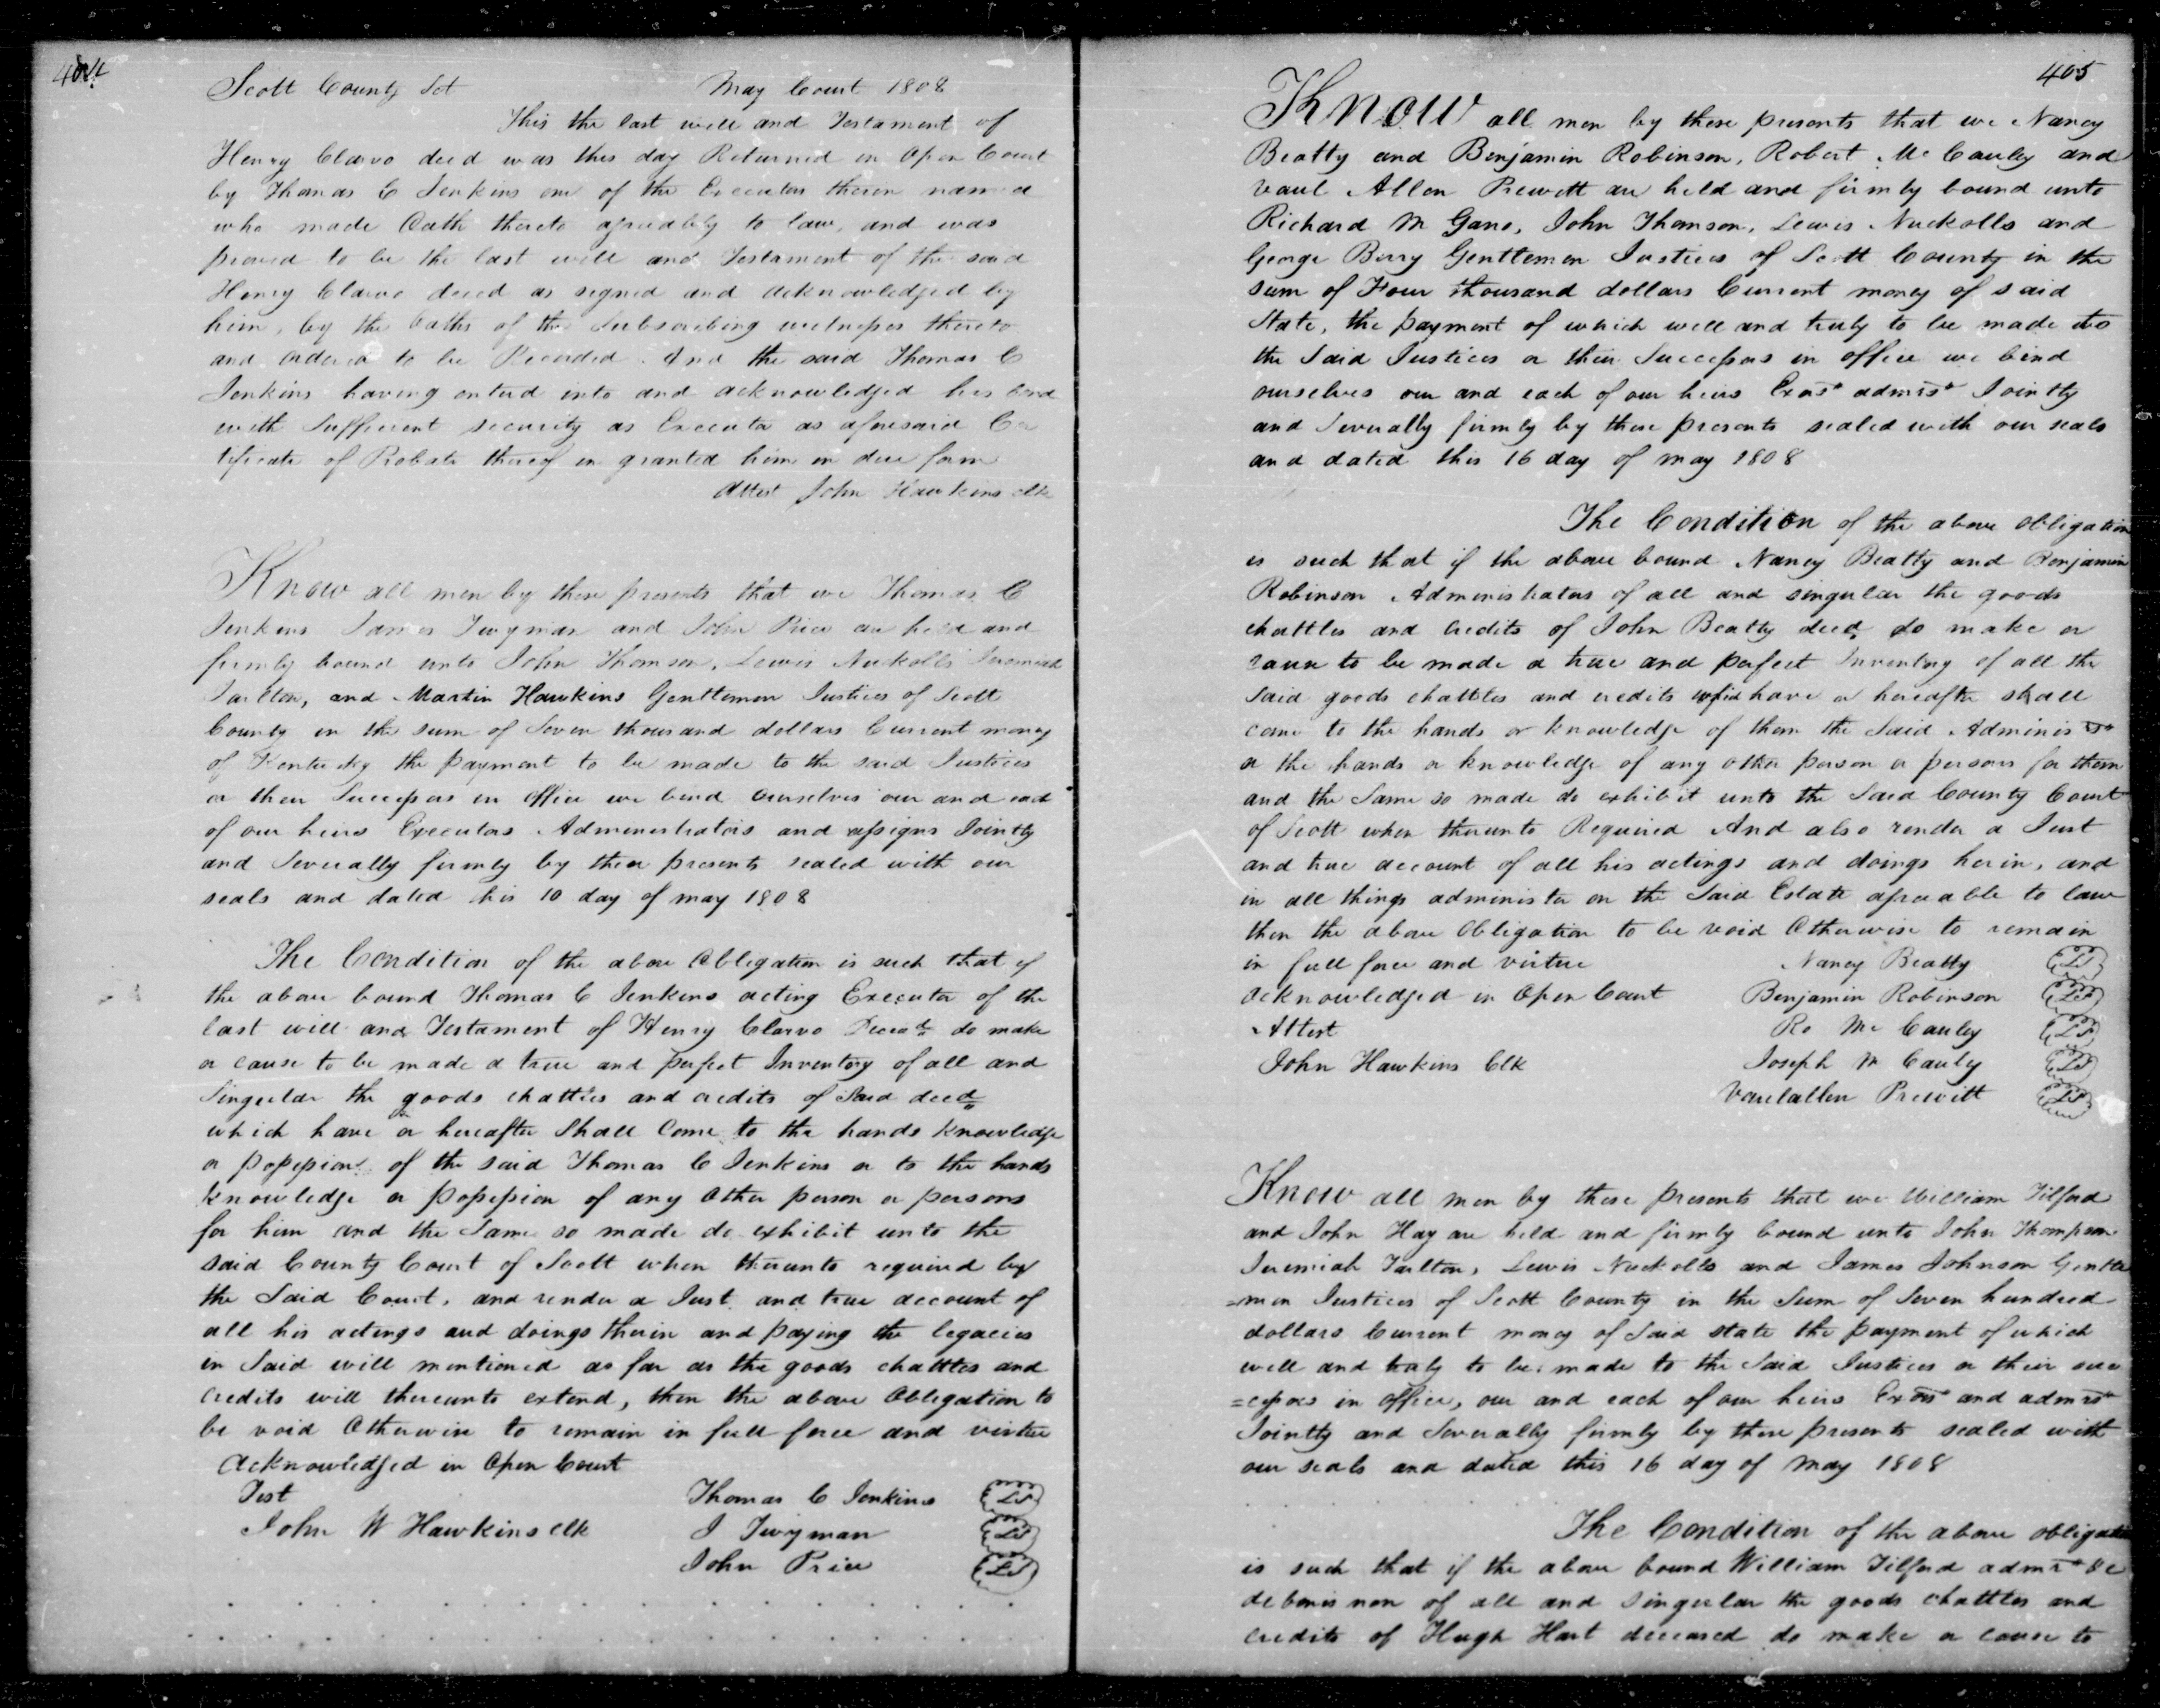 404
Scott County Sct May Court 1808
This the last will and Testament of
Henry Clarvo decd was this day Returned in Open Court
by Thomas C Jenkins one of the Executors therein named
who made Oath thereto agreeably to law, and was
proved to be the last will and Testament of the said
Henry Clarvo decd as signed and acknowledged by
him, by the Oaths of the Subscribing witnesses thereto
and ordered to be Recorded. And the said Thomas C
Jenkins having entered into and acknowledged his bond
with Sufficient security as Executor as aforesaid Cer
tificate of Probate thereof in granted him in due form
Attest John Hawkins clk
Know all men by these presents that we Thomas C
Jenkins James Twyman and John Price are held and
firmly bound unto John Thomson, Lewis Nuckolls Jeremiah
Tarlton, and Martin Hawkins Gentlemen Justices of Scott
County in the sum of Seven thousand dollars Current money
of Kentucky the payment to be made to the said Justices
or their Successors in office we bind ourselves our and each
of our heirs Executors Administrators and assigns Jointly
and Severally firmly by these presents sealed with our
seals and dated this 10 day of may 1808
The Condition of the above Obligation is such that if
the above bound Thomas C Jenkins acting Executor of the
last will and Testament of Henry Clarvo Decead do make
or cause to be made a true and perfect Inventory of all and
Singular the goods chattles and credits of Said decd
which have or hereafter Shall Come to the hands knowledge
or possession of the said Thomas C Jenkins or to the hands
knowledge or possession of any Other person or persons
for him and the Same so made do exhibit unto the
said County Court of Scott when thereunto required by
the Said Court, and render a Just and true account of
all his actings and doings therein and paying the legacies
in Said will mentioned as far as the goods chattles and
credits will thereunto extend, then the above Obligation to
be void Otherwise to remain in full force and virtue
Acknowledged in Open Court
Test Thomas C Jenkins LS
John W Hawkins clk J Twyman LS
John Price LS
405
Know all men by these presents that we Nancy
Beatty and Benjamin Robinson, Robert McCauley and
Vaul Allen Prewitt are held and firmly bound unto
Richard M Gano, John Thomson, Lewis Nuckolls and
George Berry Gentlemen Justices of Scott County in the
sum of Four thousand dollars Current money of said
State, the payment of which well and truly to be made to
the Said Justices or their Successors in office we bind
ourselves our and each of our heirs Exors admrs Jointly
and Severally firmly by these presents sealed with our seals
and dated this 16 day of may 1808
The Condition of the above obligation
is such that if the above bound Nancy Beatty and Benjamin
Robinson Administrators of all and singular the goods
chattles and credits of John Beatty decd, do make or
cause to be made a true and perfect Inventory of all the
Said goods chattles and credits which have or hereafter shall
come to the hands or knowledge of them the Said Administrs
or the hands or knowledge of any other person or persons for them
and the Same so made do exhibit unto the Said County Court
of Scott when thereunto Required And also render a Just
and true account of all his actings and doings herin, and
in all things administer on the Said Estate agreeable to law
then the above Obligation to be void Otherwise to remain
in full force and virtue Nancy Beatty LS
Acknowledged in Open Court Benjamin Robinson LS
Attest Ro McCauley LS
John Hawkins Clk Joseph McCauley LS
Vaulallen Prewitt LS
Know all men by these presents that we William Tilford
and John Hay are held and firmly bound unto John Thompson
Jeremiah Tarlton, Lewis Nuckolls and James Johnson Gentle
=men Justices of Scott County in the Sum of Seven hundred
dollars Current money of Said state the payment of which
well and truly to be made to the Said Justices or their suc
=cessors in office, our and each of our heirs Exors and admrs
Jointly and Severally firmly by these presents sealed with
our seals and dated this 16 day of may 1808
The Condition of the above obligation
is such that if the above bound William Tilford admr
de bonis non of all and Singular the goods chattles and
credits of Hugh Hart deceased do make or cause to